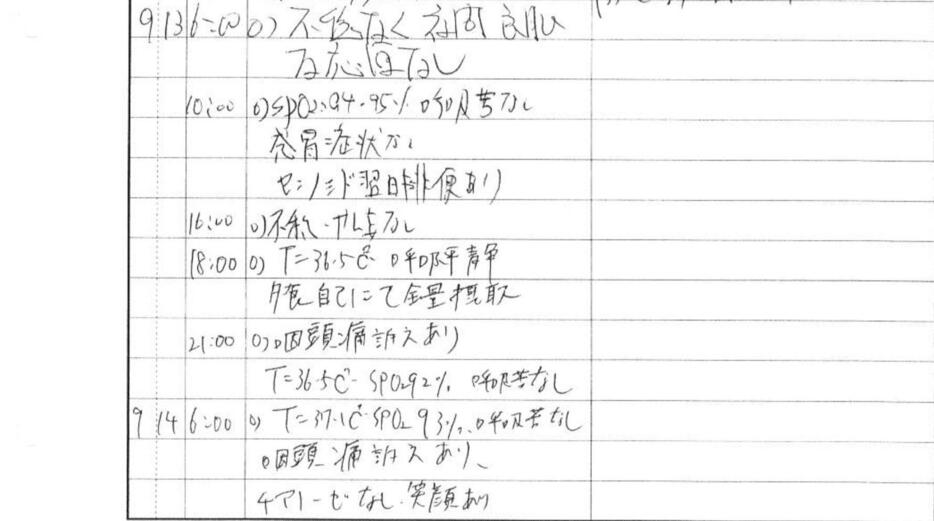 9 13 6:00 O) 不穏なく 夜間 良眠
な応答なし
10:00 O) SPO2:94-95% 呼吸苦なし
感冒症状なし
センノシド翌日排便あり
16:00 O) 不穏・なし
18:00 O) T=36.5℃ 呼吸平静
夕食自己にて全量摂取
21:00 O) 咽頭痛訴えあり
T=36.5℃ SPO2 92% 呼吸苦なし
9 14 6:00 O) T=37.1℃ SPO2 93%、呼吸苦なし
咽頭痛訴えあり、
チアノーゼなし 笑顔あり